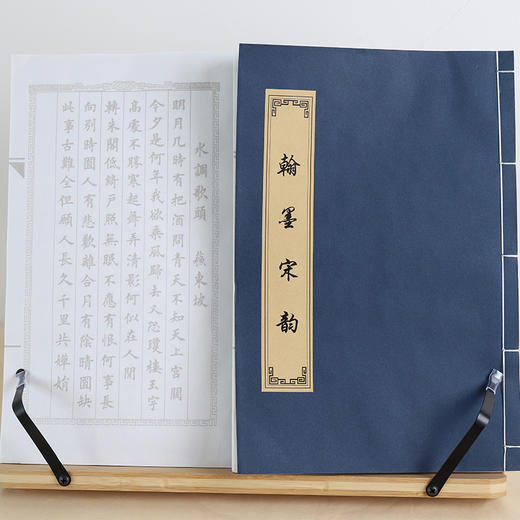 翰墨宋韵
水調歌頭 蘇東坡
明月几時有把酒問青天不知天上宮闕
今夕是何年我欲乘風歸去又恐瓊樓玉宇
高處不勝寒起舞弄清影何似在人間
轉朱閣低綺戶照無眠不應有恨何事長
向別時圓人有悲歡離合月有陰晴圓缺
此事古難全但願人長久千里共嬋娟